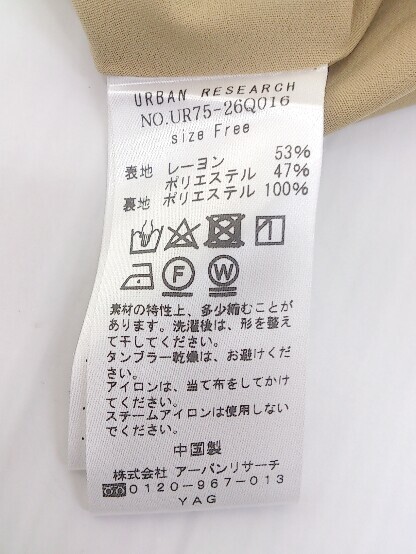 URBAN RESEARCH
NO.UR75-26Q016
size Free
表地 レーヨン 53%
ポリエステル 47%
裏地 ポリエステル 100%
F W
素材の特性上、多少縮むことが
あります。洗濯後は、形を整え
て干してください。
タンブラー乾燥は、お避けくだ
さい。
アイロンは、当て布をしてかけ
てください。
スチームアイロンは使用しない
でください。
中国製
株式会社 アーバンリサーチ
0120-967-013
YAG